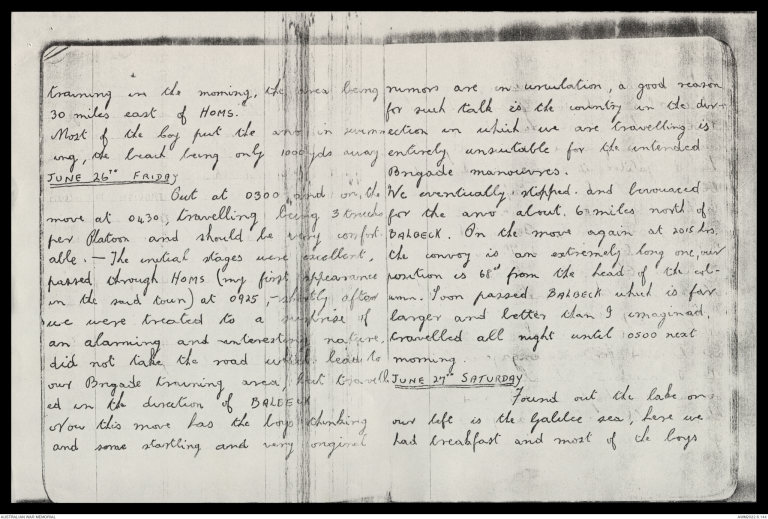 training in the morning, the area being
30 miles east of HOMS.
Most of the boy put the arvo in swimm-
ing, the beach being only 1000 yds away
JUNE 26TH FRIDAY
Out at 0300 and on the
move at 0430, travelling being 3 trucks
per Platoon and should be very comfort-
able. — The initial stages were excellent,
passed through HOMS (my first appearance
in the said town) at 0925, - shortly after
we were treated to a surprise of
an alarming and interesting nature,
did not take the road which leads to
our Brigade training area, but travell-
ed in the direction of BALBECK
Now this move has the boys thinking
and some startling and very original
rumors are in circulation, a good reason
for such talk is the country in the dir-
ection in which we are travelling is
entirely unsuitable for the intended
Brigade manouvres.
We eventually stopped and bivouaced
for the arvo about 6 miles north of
BALBECK. On the move again at 2015 hrs.
the convoy is an extremely long one, our
position is 68th from the head of the col-
umn. Soon passed BALBECK which is far
larger and better than I imagined,
travelled all night until 0500 next
morning.
JUNE 27TH SATURDAY
Found out the lake on
our left is the Galilee sea, here we
had breakfast and most of the boys
AUSTRALIAN WAR MEMORIAL